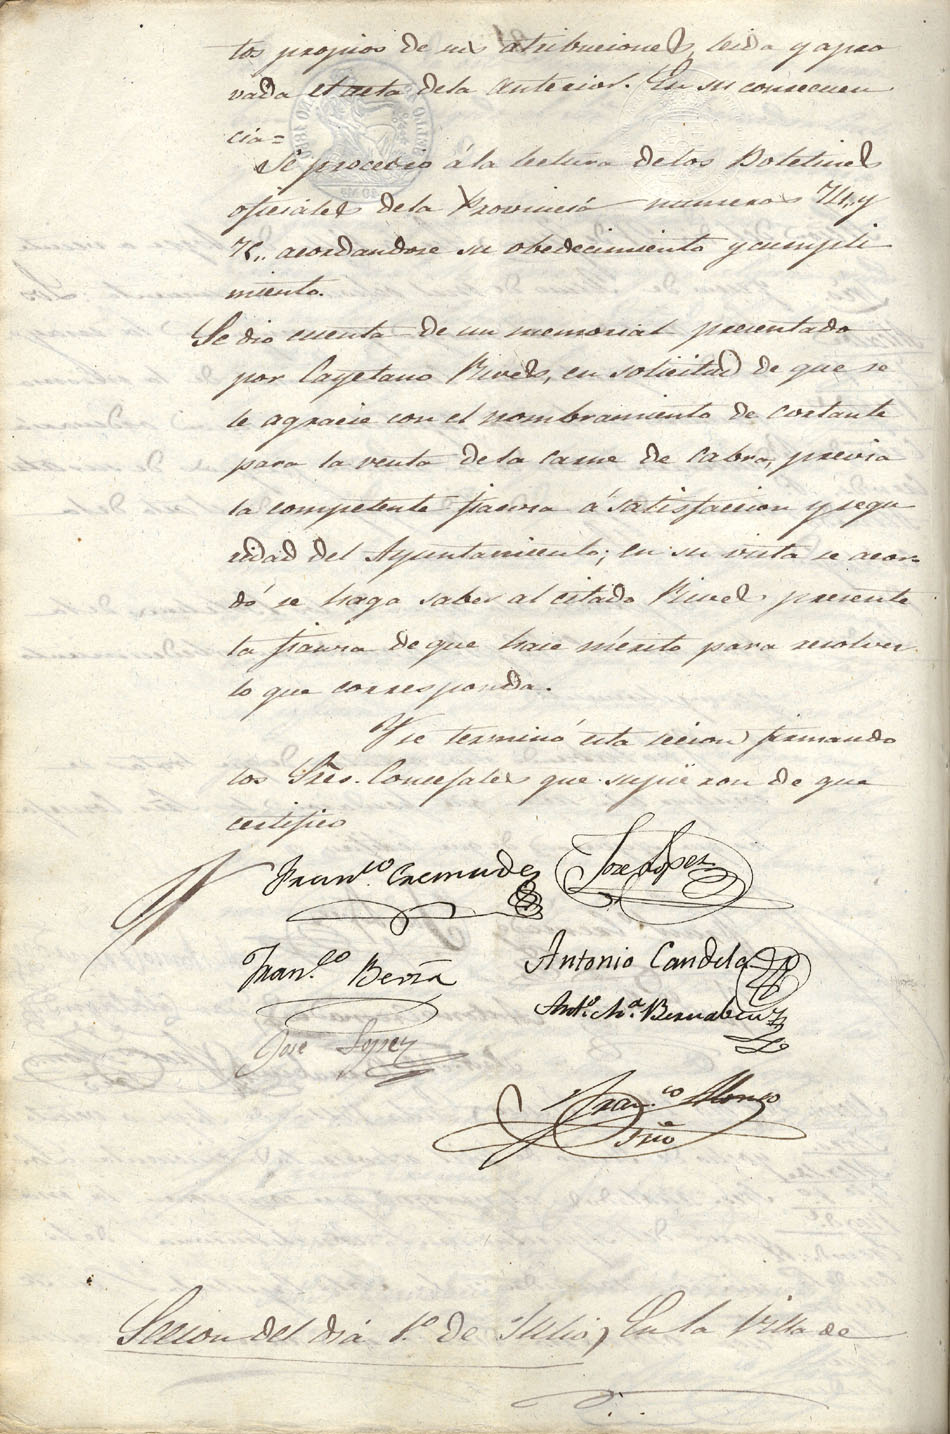 tos propios de sus atribuciones, leida y apro
vada el acta dela anterior. En su consecuen
cia=
Se procedio á la lectura delos Boletines
oficiales dela Provincia numeros 74, y
acordandose su obedecimiento y cumpli
miento.
Se dio cuenta de un memorial presentado
por Cayetano Rives, en solicitud de que se
le agracie con el nombramiento de cortante
para la venta dela carne de cabra, previa
la competente fianza á satisfaccion y segu
ridad del Ayuntamiento; en su vista se acor
dó se haga saber al citado Rives presente
la fianza de que hace mérito para resolver
lo que corresponda.
Y se terminó esta secion firmando
los Sres. Concejales que supieron de que
certifico
Franco. Cremades
Jose Lopez
Franco. Berná
Antonio Candela
Anto. Ma. Bernabeu
Jose Lopez
Franco Alonso
Srio
Secion del dia 1o. de Julio, En la Villa de